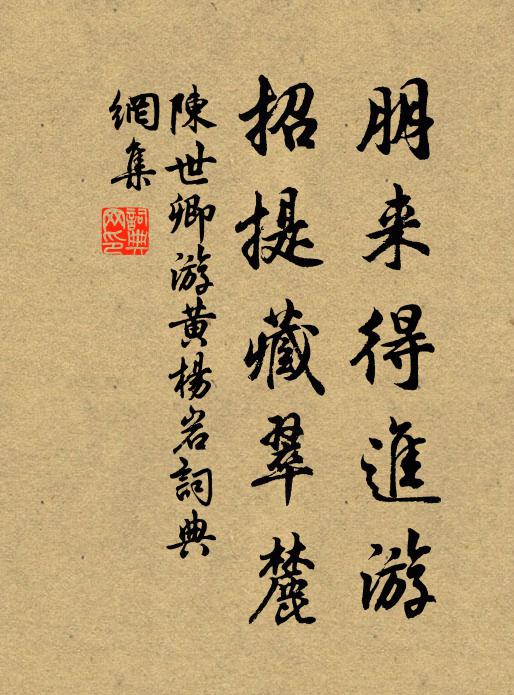 朋来得進游
招提藏翠麓
陳世卿游黄楊岩詞典
網集
詞典
网印